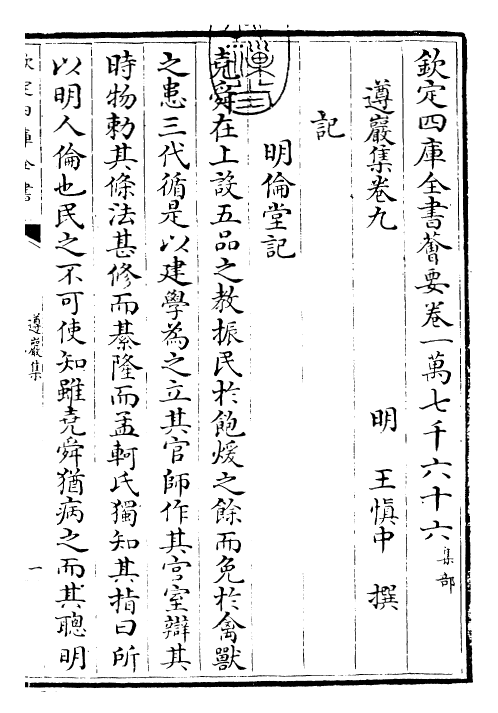 欽定四庫全書薈要卷一萬七千六十六集部
遵巖集卷九
明 王慎中 撰
記
明倫堂記
堯舜在上設五品之教振民於飽煖之餘而免於禽獸
之患三代循是以建學為之立其官師作其宫室辯其
時物勑其條法甚修而綦隆而孟軻氏獨知其指曰所
以明人倫也民之不可使知雖堯舜猶病之而其聰明
欽定四庫全書
遵巖集
一